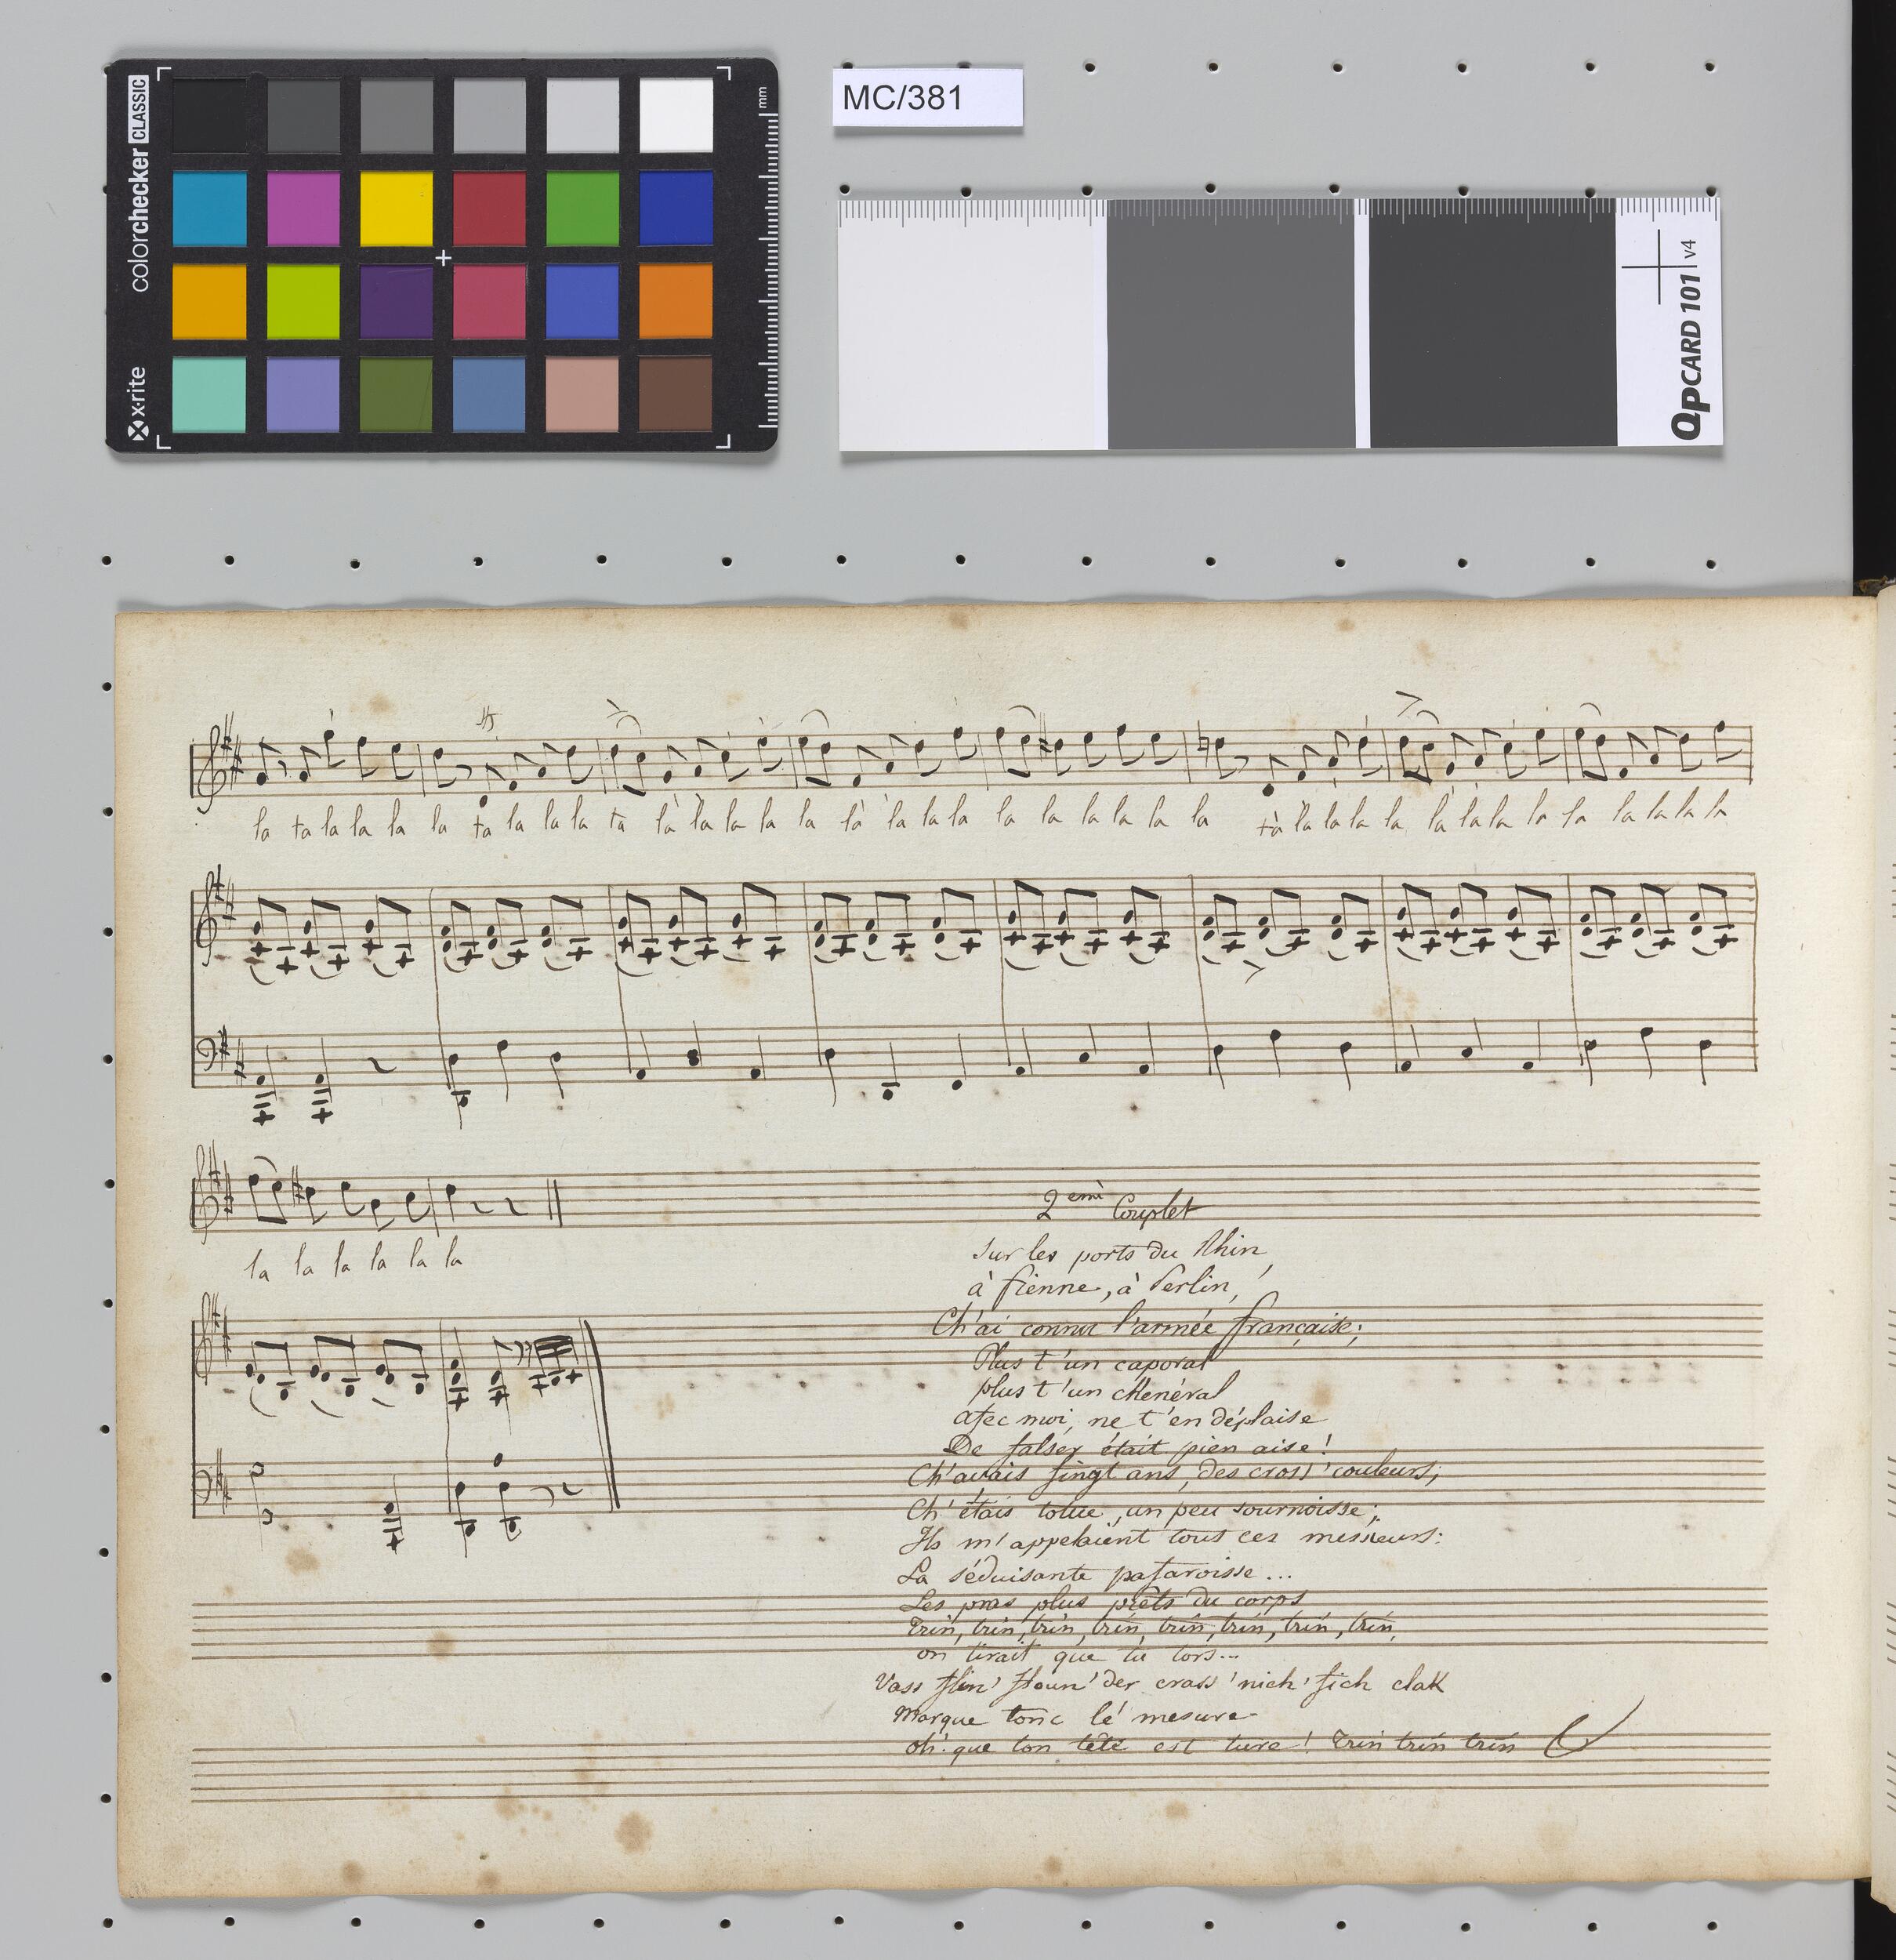 colorchecker CLASSIC
x-rite
mm
MC/381
QPCARD 101 v4
la ta la la la la ta la la la ta la la la la la la la la la la la la la la la tà la la la la la la la la la la la la la
la la la la la la
2eme Couplet
Sur les ports du Rhin,
à fienne, à Perlin,
Ch'ai connu l'armée française;
Plus t'un caporal
plus t'un chénéral
afec moi, ne t'en déplaise
De falser était pien aise!
Ch'avais fingt ans, des cross' couleurs;
Ch'étais tolue, un peu sournoisse;
Ils m'appelaient tout ces messieurs:
La séduisante pafaroisse...
Les pras plus prêts du corps
Trin, trin, trin, trin, trin, trin, trin, trin,
on tirait que tu tors...
Vass flin' floun' der crass' nich' fich clak
Marque tonc lé mesure
Oh! que ton tête est ture! Trin trin trin